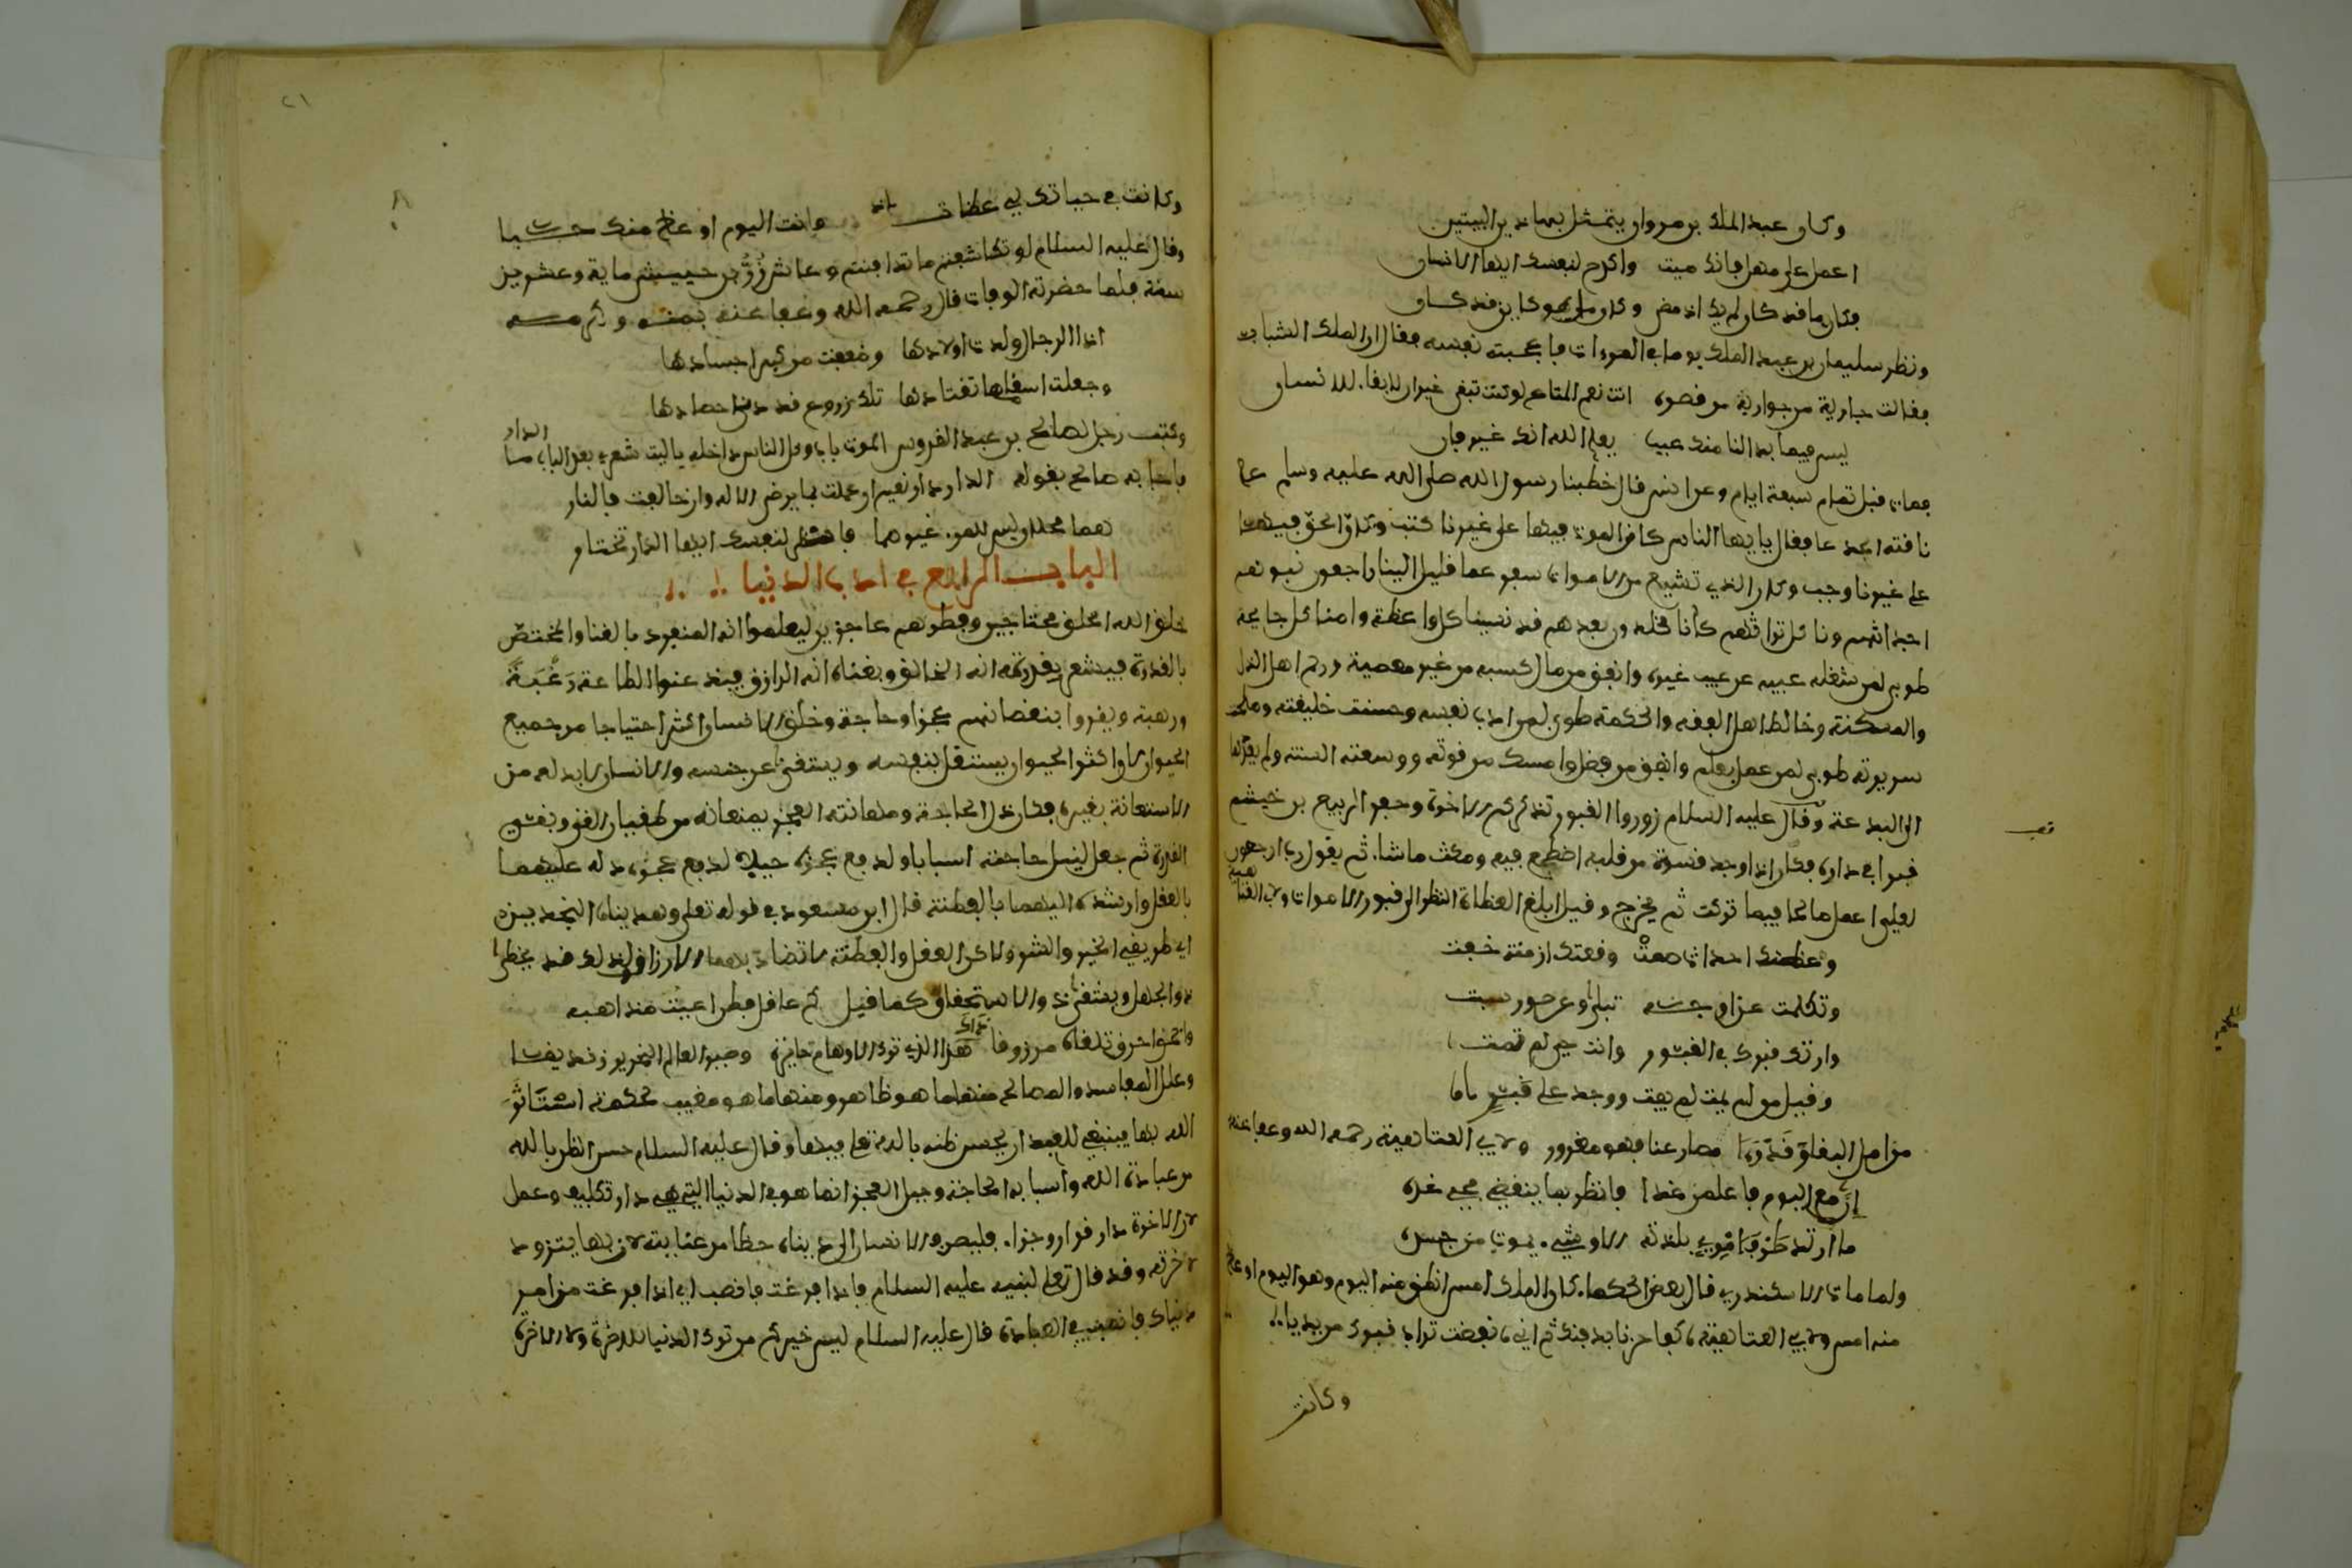 وكان عبد الملك بن مروان يتمثل بهاذين البيتين
اعمل على مهل فانك ميت واكدح لنفسك ايها الانسان
فكان ما قد كان لم يك اذ مضى وكان ما هو كاين قد كان
ونظر سليمان بن عبد الملك يوما في المرءات فاعجبته نفسه فقال انا الملك الشباب
فقالت جارية من جواريه من قصره انت نعم المتاع لو كنت تبقى غير ان لا بقاء للانسان
ليس فيما بدا لنا منك عيب يعلم الله انك غير فان
فمات قبل تمام سبعة ايام وعن انس قال خطبنا رسول الله صلى الله عليه وسلم على
ناقته الجدعا فقال يايها الناس كان الموت فيها على غيرنا كتب وكان الحق فيها
على غيرنا وجب وكان الذي تشيع من الاموات سفر عما قليل الينا راجعون نبوئهم
اجداثهم وناكل تراثهم كأنا مخلدون بعدهم قد نسينا كل واعظة وامنا كل جايحة
طوبى لمن شغله عيبه عن عيب غيره وانفق من مال اكسبه من غير معصية ورحم اهل الذل
والمسكنة وخالط اهل الفقه والحكمة طوبى لمن ادب نفسه وحسنت خليقته وصلحت
سريرته طوبى لمن عمل بعلم وانفق من فضل وامسك من قوته ووسعته السنة ولم يعدلها
الى البدعة وقال عليه السلام زوروا القبور تذكركم الاخرة وحفر الربيع بن خيشم
قبرا في داره فكان اذا وجد قسوة من قلبه اضطجع فيه ومكث ما شاء ثم يقول رب ارجعون
لعلي اعمل صالحا فيما تركت ثم يخرج وقيل ابلغ العظاة النظر الى قبور الاموات ولابي العتاهية
وعظتك اجداث صمتْ ونعتك ازمنة خفت
وتكلمت عن اوجه تبلى وعن صور سبت
وارتك قبرك في القبور وانت حي لم تمت
وقيل من لم يمت لم يفت ووجد على قبر
من امل البقاء وقد رءا مصارعنا فهو مغرور ولابي العتاهية رحمه الله وعفا عنه
إن مع اليوم فاعلمن غدا فانظر بما ينقضي مجيء غده
ما ارتد طرف امرىء بلذته الا وشيء يموت من جسده
ولما مات الاسكندر قال بعض الحكماء كان الملك امس انطق منه اليوم وهو اليوم اوعظ
منه امس ولابي العتاهية كفا حزنا بدفنك ثم اني نفضت تراب قبرك من يديا
وكانت
٢١
وكانت في حياتك لي عظات وانت اليوم اوعظ منك حيا
وقال عليه السلام لو تكاشفتم ما تدافنتم وعاش زرُّ بن حبيش ماية وعشرين
سنة فلما حضرته الوفات قال رحمه الله وعفا عنه بمنه وكرمه
اذا الرجال ولدت اولادها وضعفت من كبر اجسادها
وجعلت اسقامها تعتادها تلك زروع قد دنا حصادها
وكتب رجل لصالح بن عبد القدوس الموت باب وكل الناس داخله ياليت شعري بعد الباب ما الدار
فاجابه صالح بقوله الدار دار نعيم ان عملت بما يرضي الاله وان خالفت فالنار
هما محلان ليس للمرء غيرهما فانظر لنفسك ايها الدار تختار
الباب الرابع في ادب الدنيا
خلق الله الخلق محتاجين وفطرهم عاجزين ليعلموا انه المنفرد بالغنا والمختص
بالقدرة فيشعر بقدرته انه الخالق وبغناه انه الرازق فيذعنوا الطاعة رَغبةً
ورهبة ويقروا بنقصانهم عجزا وحاجة وخلق الانسان اكثر احتياجا من جميع
الحيوان واكثر الحيوان يستقل بنفسه ويستغني عن جنسه والانسان لابد له من
الاستعانة بغيره فكان ذل الحاجة ومهانة العجز يمنعانه من طغيان الغنى وبغي
القدرة ثم جعل لنيل حاجته اسبابا ولدفع عجزه حيلا لدفع عجزه دله عليهما
بالعقل وارشده اليهما بالفطنة قال ابن مسعود في قوله تعلى وهديناه النجدين
اي طريقي الخير والشر ولاكن العقل والفطنة لا تضاد بهما الارزاق لذلك قد يخطى
ذو الجهل ويستغني ذو الاستحقاق كما قيل كم عاقل فطن اعيت مذاهبه
واحمق اخرق تلقاه مرزوقا هذا الذي ترك الاوهام حايرة وصير العالم النحرير زنديقا
وعلل المفاسد والمصالح منها ما هو ظاهر ومنها ما هو مغيب لحكمة استاثر
الله بها فينبغي للعبد ان يحسن ظنه بالله تعلى فيها وقال عليه السلام حسن الظن بالله
من عبادة الله واسباب الحاجة وحيل العجز انما هو في الدنيا التي هي دار تكليف وعمل
لان الاخرة دار قرار وجزاء فليصرف الانسان الى دنياه حظا من عنايته لانه بها يتزود
لاخرته وقد قال تعلى لنبيه عليه السلام فاذا فرغت فانصب اي اذا فرغت من امر
دنياك فانصب في العبادة قال عليه السلام ليس خيركم من ترك الدنيا للاخرة ولا الاخرة